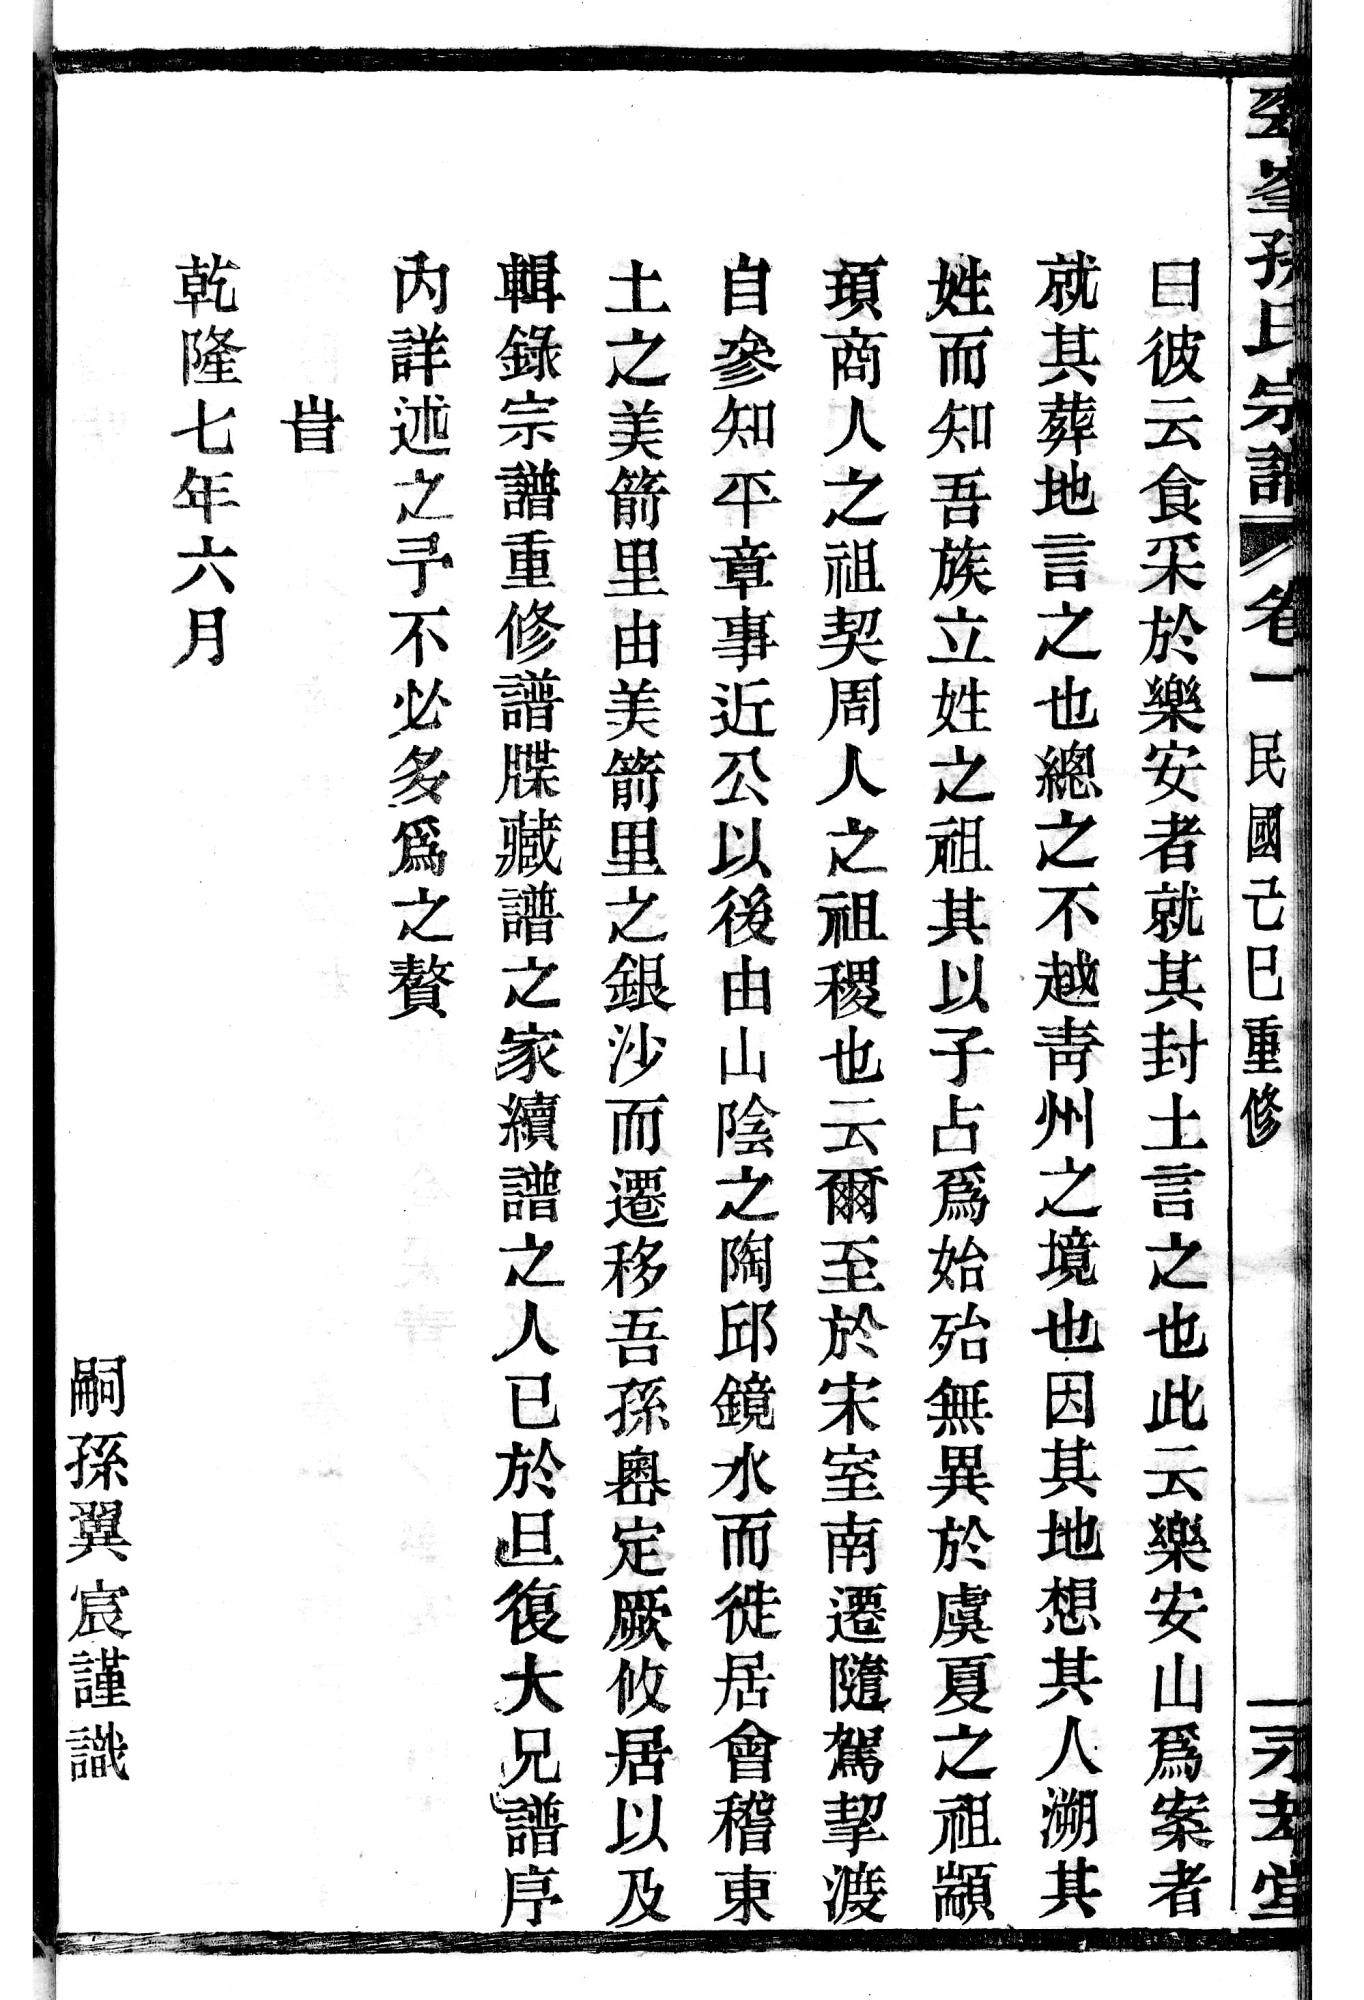 峯孫氏宗譜 卷一 民國己巳重修 一 永孝堂
曰彼云食采於樂安者就其封土言之也此云樂安山爲案者
就其葬地言之也總之不越靑州之境也因其地想其人溯其
姓而知吾族立姓之祖其以子占爲始殆無異於虞夏之祖顓
頊商人之祖契周人之祖稷也云爾至於宋室南遷隨駕挈渡
自參知平章事近公以後由山陰之陶邱鏡水而徙居會稽東
土之美箭里由美箭里之銀沙而遷移吾孫嶴定厥攸居以及
輯錄宗譜重修譜牒藏譜之家續譜之人已於旦復大兄譜序
內詳述之予不必多爲之贅
旹
乾隆七年六月
嗣孫翼宸謹識